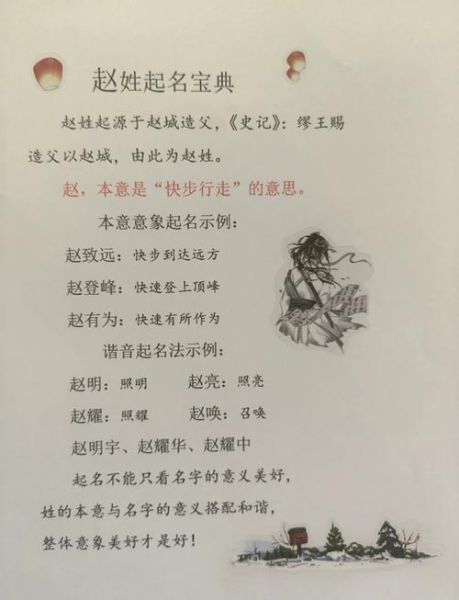 赵姓起名宝典
赵姓起源于赵城造父，《史记》：缪王赐
造父以赵城，由此为赵姓。
赵，本意是“快步行走”的意思。
本意意象起名示例：
赵致远：快步到达远方
赵登峰：快速登上顶峰
赵有为：快速有所作为
谐音起名法示例：
赵明：照明 赵亮：照亮
赵耀：照耀 赵唤：召唤
赵明宇、赵耀华、赵耀中
起名不能只看名字的意义美好，
姓的本意与名字的意义搭配和谐，
整体意象美好才是好！